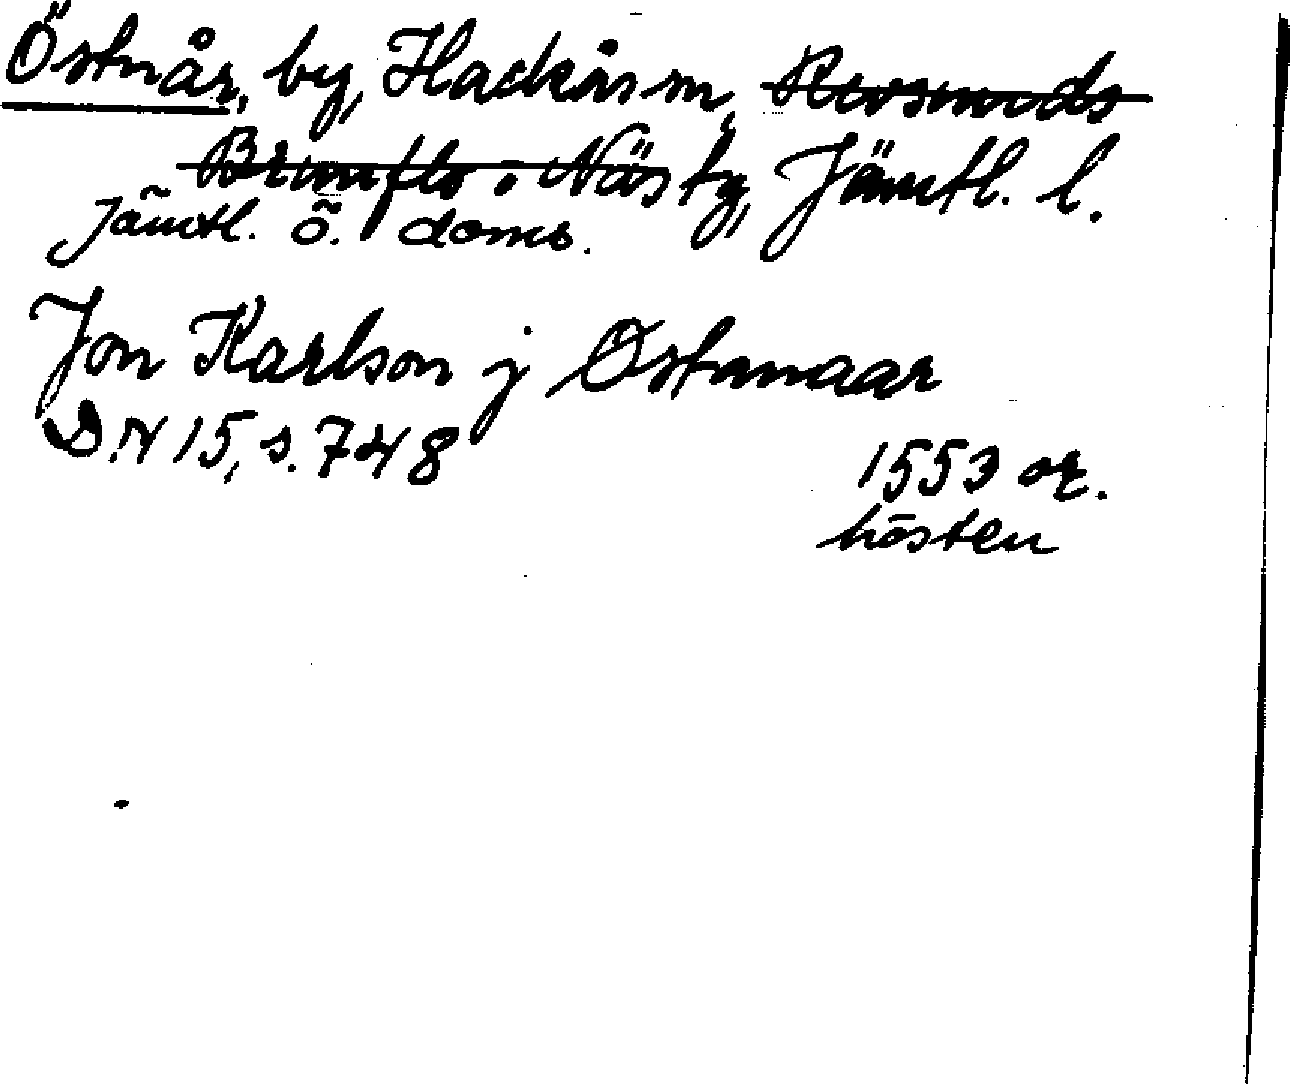 Östnår, by, Hackås sn, Revsunds
Brunflo o. Näs tg, Jämtl. l.
Jämtl. ö. doms.
Jon Karlson j Østanaar
DN 15, s. 748
1553 or.
hösten